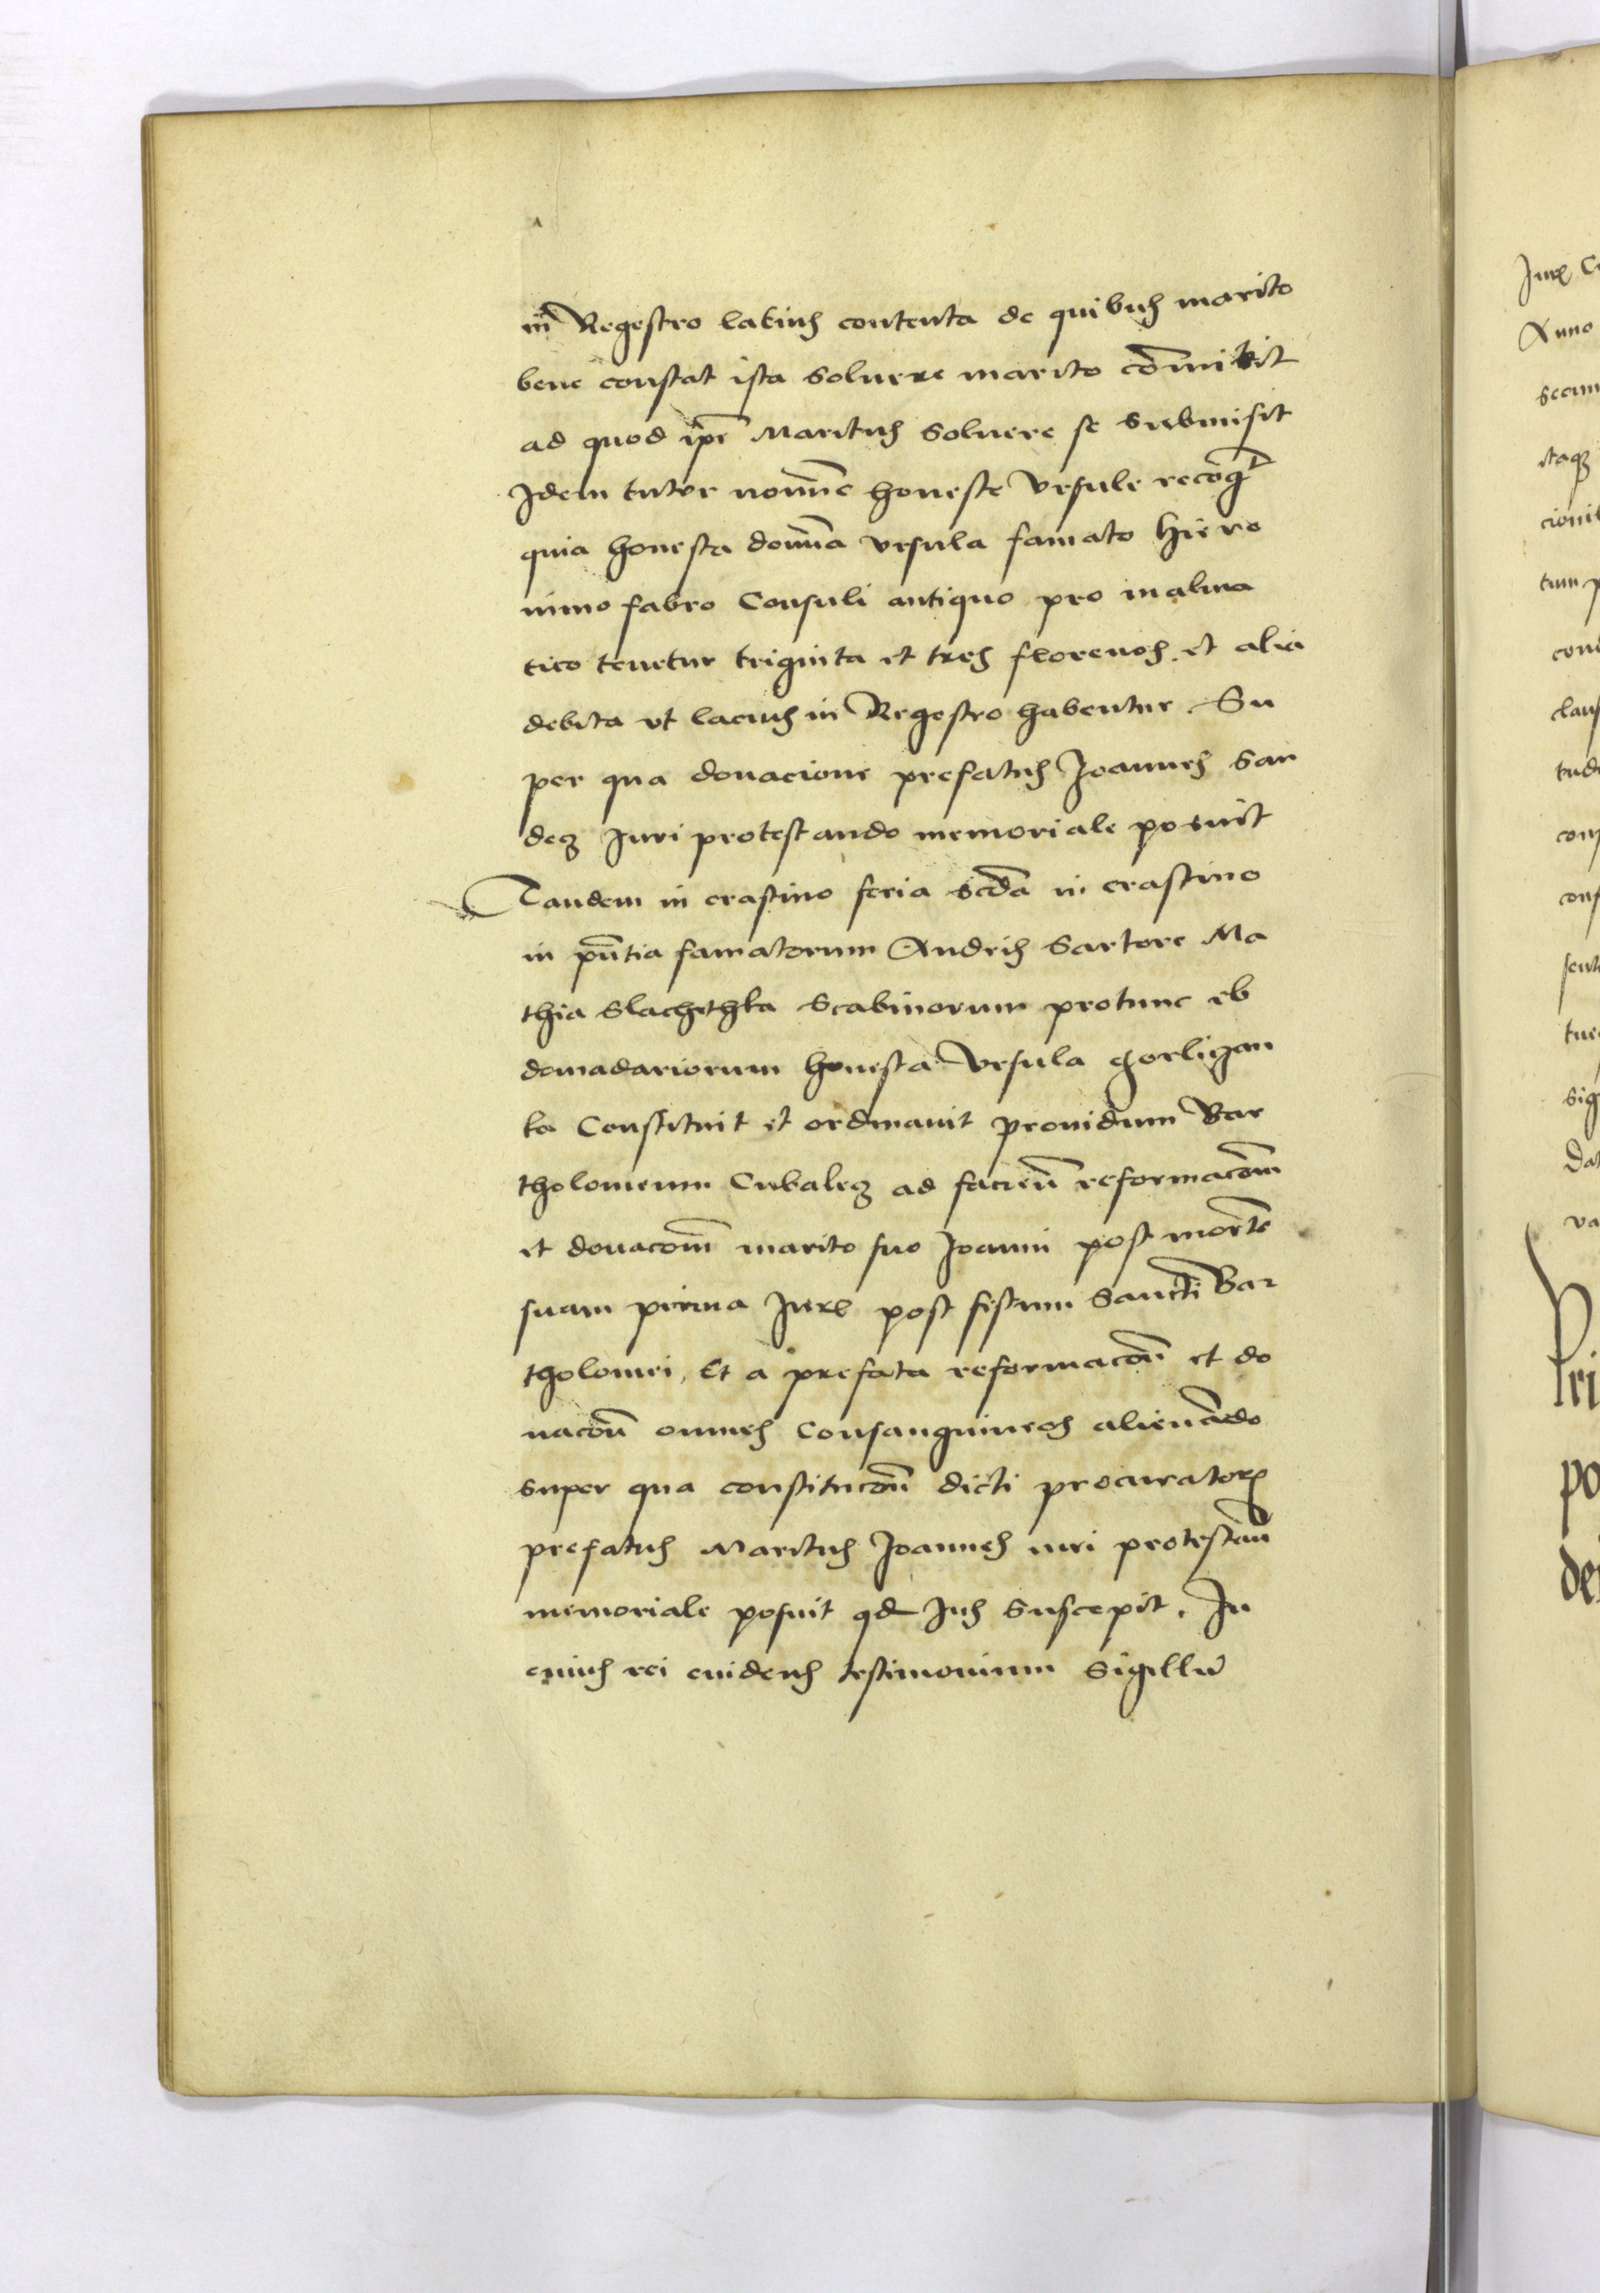 in Regestro latius contenta de quibus marito
bene constat ista soluere marito cōmitit
ad quod ip̄e Maritus soluere se submisit
Idem tutor nomīe honeste Vrsule recōg
quia honesta domīa Vrsula famato Hiero
nimo fabro Consuli antiquo pro malua
tico tenetur triginta et tres florenos et alia
debita vt lacius in Regestro habentur Su
per qua donacione prefatus Joannes San
deg Juri protestando memoriale posuit
Tandem in crastino feria scd̄a in crastino
in pn̄tia famatorum Andris Sartore Ma
thia Slachethka Scabinorum protunc eb
domadariorum honesta Vrsula Gorligan
ka Constituit et ordinauit prouidum Bar
tholomeum Cubaleg ad faciēn reformacōm
et donacōm marito suo Joanni post mortē
suam prima Jure post festum Sancti Bar
tholomei, Et a prefata reformacōn et do
nacōn omnes Consanguineos alienādo
super qua constitucōn dicti procuratorꝭ
prefatus Maritus Joannes iuri protestan̄
memoriale posuit qd Jus suscepit. In
cuius rei euidens testimonium Sigillū
Anno